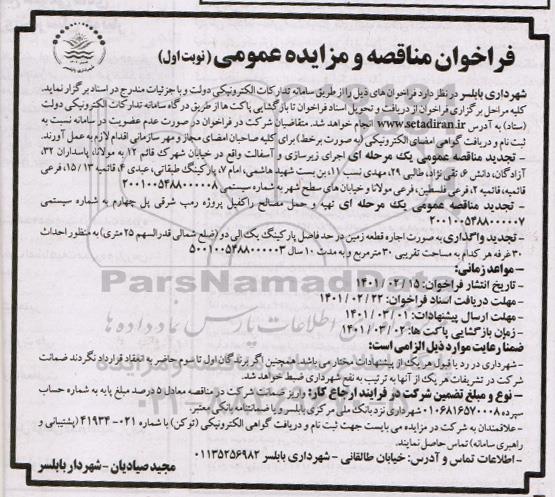 فراخوان مناقصه و مزایده عمومی (نوبت اول)
شهرداری بابلسر در نظر دارد فراخوان های ذیل را از طریق سامانه تدارکات الکترونیکی دولت و با جزئیات مندرج در اسناد برگزار نماید.
کلیه مراحل برگزاری فراخوان از دریافت و تحویل اسناد فراخوان تا بازگشایی پاکت ها از طریق درگاه سامانه تدارکات الکترونیکی دولت
(ستاد) به آدرس www.setadiran.ir انجام خواهد شد. متقاضیان شرکت در فراخوان در صورت عدم عضویت در سامانه نسبت به
ثبت نام و دریافت گواهی امضای الکترونیکی (به صورت برخط) برای کلیه صاحبان امضای مجاز و مهر سازمانی اقدام لازم به عمل آورند.
- تجدید مناقصه عمومی یک مرحله ای اجرای زیرسازی و آسفالت واقع در خیابان شهرک قائم ۱۲ به مولانا، پاسداران ۳۲،
آزادگان، دانش ۶، تقی نژاد، طالبی ۲۹، مهدی نسب ۱۱، بن بست شهید هاشمی، امام ۷، پارکینگ طبقاتی، عبدی ۴، قائم ۱۳/۱۵، فرعی
قائمیه، قائمیه ۲، فرعی فلسطین، فرعی مولانا و خیابان های سطح شهر به شماره سیستمی ۲۰۰۱۰۰۵۴۸۸۰۰۰۰۰۸
- تجدید مناقصه عمومی یک مرحله ای تهیه و حمل مصالح راکفیل پروژه رمپ شرقی پل چهارم به شماره سیستمی
۲۰۰۱۰۰۵۴۸۸۰۰۰۰۰۷
- تجدید واگذاری به صورت اجاره قطعه زمین در حد فاصل پارکینگ یک الی دو (ضلع شمالی قدرالسهم ۲۵ متری) به منظور احداث
۳۰ غرفه هر کدام به مساحت تقریبی ۳۰ مترمربع و به مدت ۱۰ سال ۵۰۰۱۰۰۵۴۸۸۰۰۰۰۰۳
- مواعد زمانی:
- تاریخ انتشار فراخوان: ۱۴۰۱/۰۲/۱۵
- مهلت دریافت اسناد فراخوان: ۱۴۰۱/۰۲/۲۲
- مهلت ارسال پیشنهادات: ۱۴۰۱/۰۳/۰۱
- زمان بازگشایی پاکت ها: ۱۴۰۱/۰۳/۰۲
ضمنا رعایت موارد ذیل الزامی است:
- شهرداری در رد یا قبول هر یک از پیشنهادات مختار می باشد. همچنین اگر برندگان اول تا سوم حاضر به انعقاد قرارداد نگردند ضمانت
شرکت در تشریفات هر یک از آنها به ترتیب به نفع شهرداری ضبط خواهد شد.
- نوع و مبلغ تضمین شرکت در فرایند ارجاع کار: واریز ضمانت شرکت در مناقصه معادل ۵ درصد مبلغ پایه به شماره حساب
سپرده ۰۱۰۶۸۱۶۵۷۰۰۰۸ شهرداری نزد بانک ملی مرکزی بابلسر و یا ضمانتنامه بانکی معتبر.
- علاقمندان به شرکت در مزایده می بایست جهت ثبت نام و دریافت گواهی الکترونیکی (توکن) با شماره ۰۲۱-۴۱۹۳۴ (پشتیبانی و
راهبری سامانه) تماس حاصل نمایند.
- اطلاعات تماس و آدرس: خیابان طالقانی - شهرداری بابلسر ۰۱۱۳۵۲۵۶۹۸۲
مجید صیادیان - شهردار بابلسر
ParsNamadData